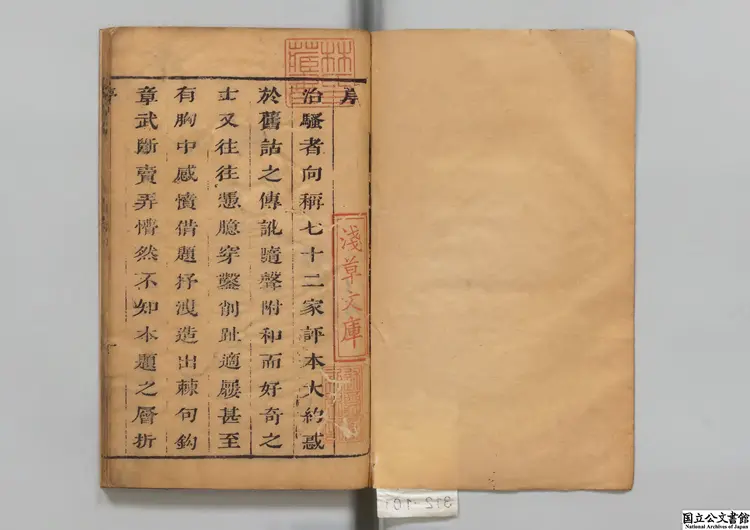 序
治騷者向稱七十二家評本大約惑
於舊詁之傳訛隨聲附和而好奇之
士又往往憑臆穿鑿削趾適屨甚至
有胸中感憤借題抒洩造出棘句鈎
章武斷賣弄懵然不知本題之層折
序
淺草文庫
312-101
国立公文書館
National Archives of Japan